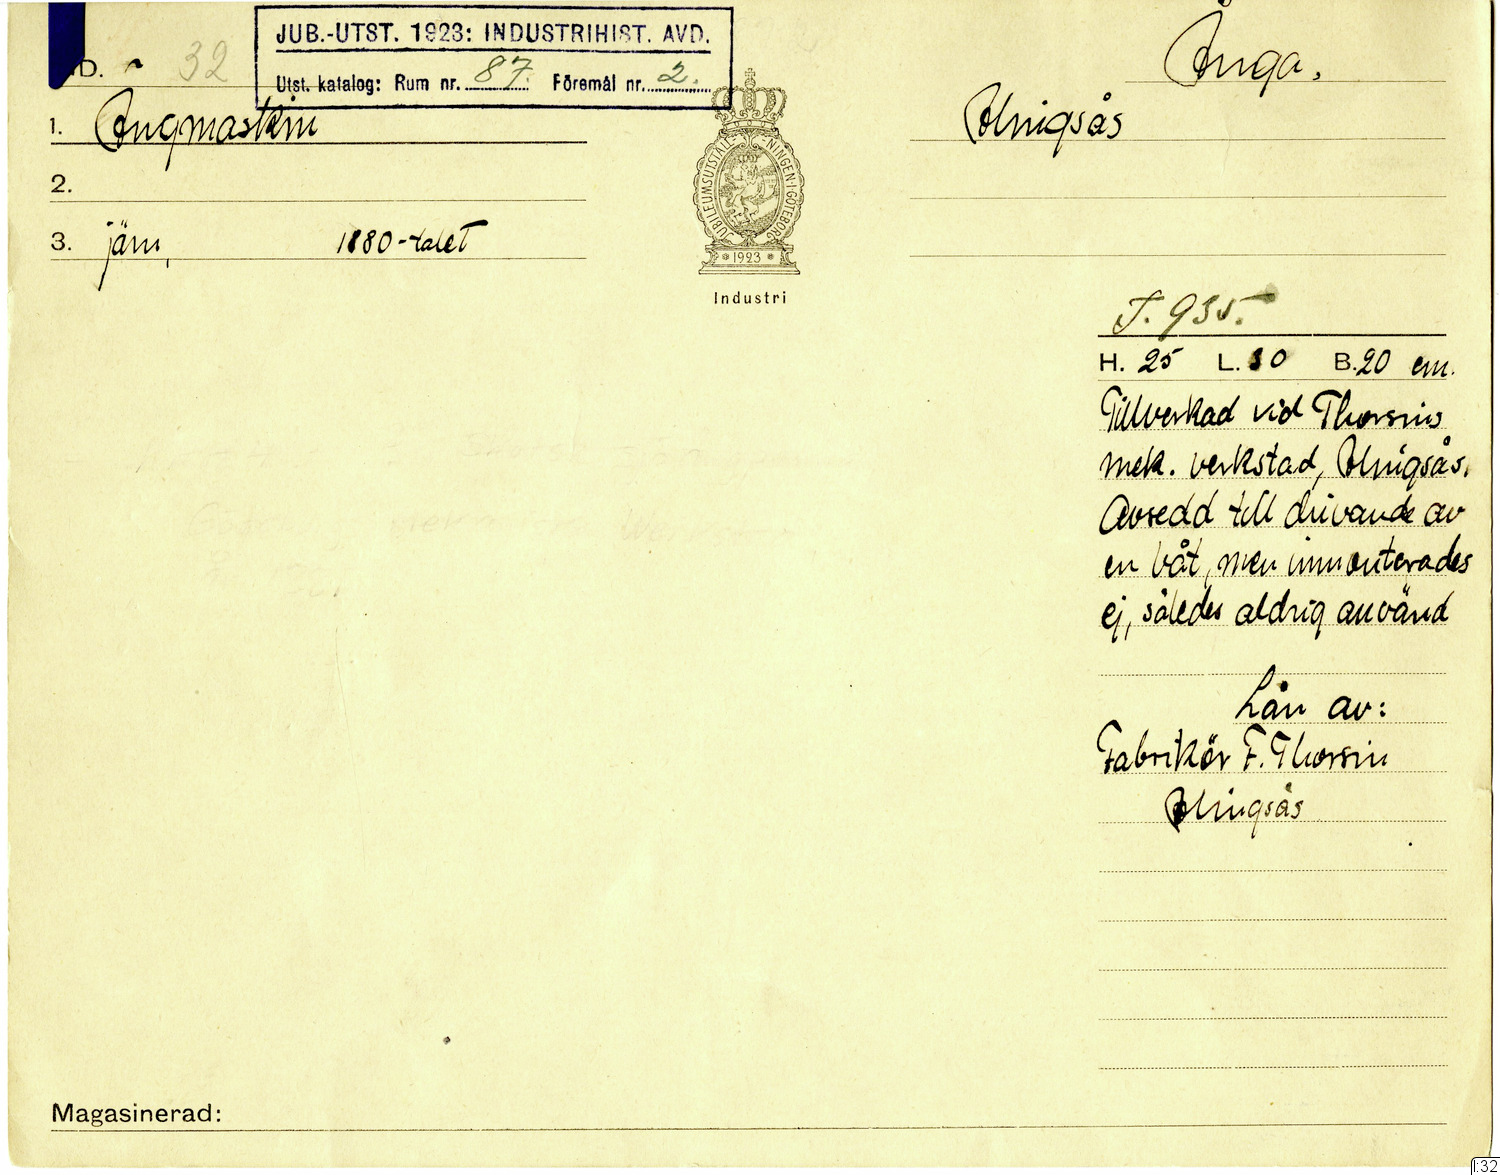 JUB.-UTST. 1923: INDUSTRIHIST. AVD.
Utst. katalog: Rum nr. 87. Föremål nr. 2.
ND. 32
Ånga.
1. Ångmaskin
Alingsås
2.
3. järn, 1880-talet
JUBILEUMSUTSTÄLLNINGEN·I·GÖTEBORG
1923
Industri
F. 935.
H. 25 L. 30 B. 20 cm.
Tillverkad vid Thorsins
mek. verkstad, Alingsås.
Avsedd till drivande av
en båt, men inmonterades
ej, således aldrig använd
Lån av:
Fabrikör F. Thorsin
Alingsås
Magasinerad:
1:32